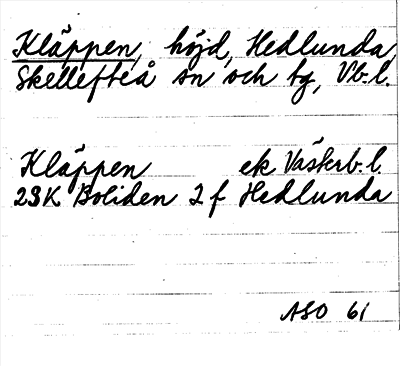 Kläppen, höjd, Hedlunda,
Skellefteå sn och tg, Vb.l.
Kläppen ek Västerb.l.
23K Boliden 2 f Hedlunda
ASO 61